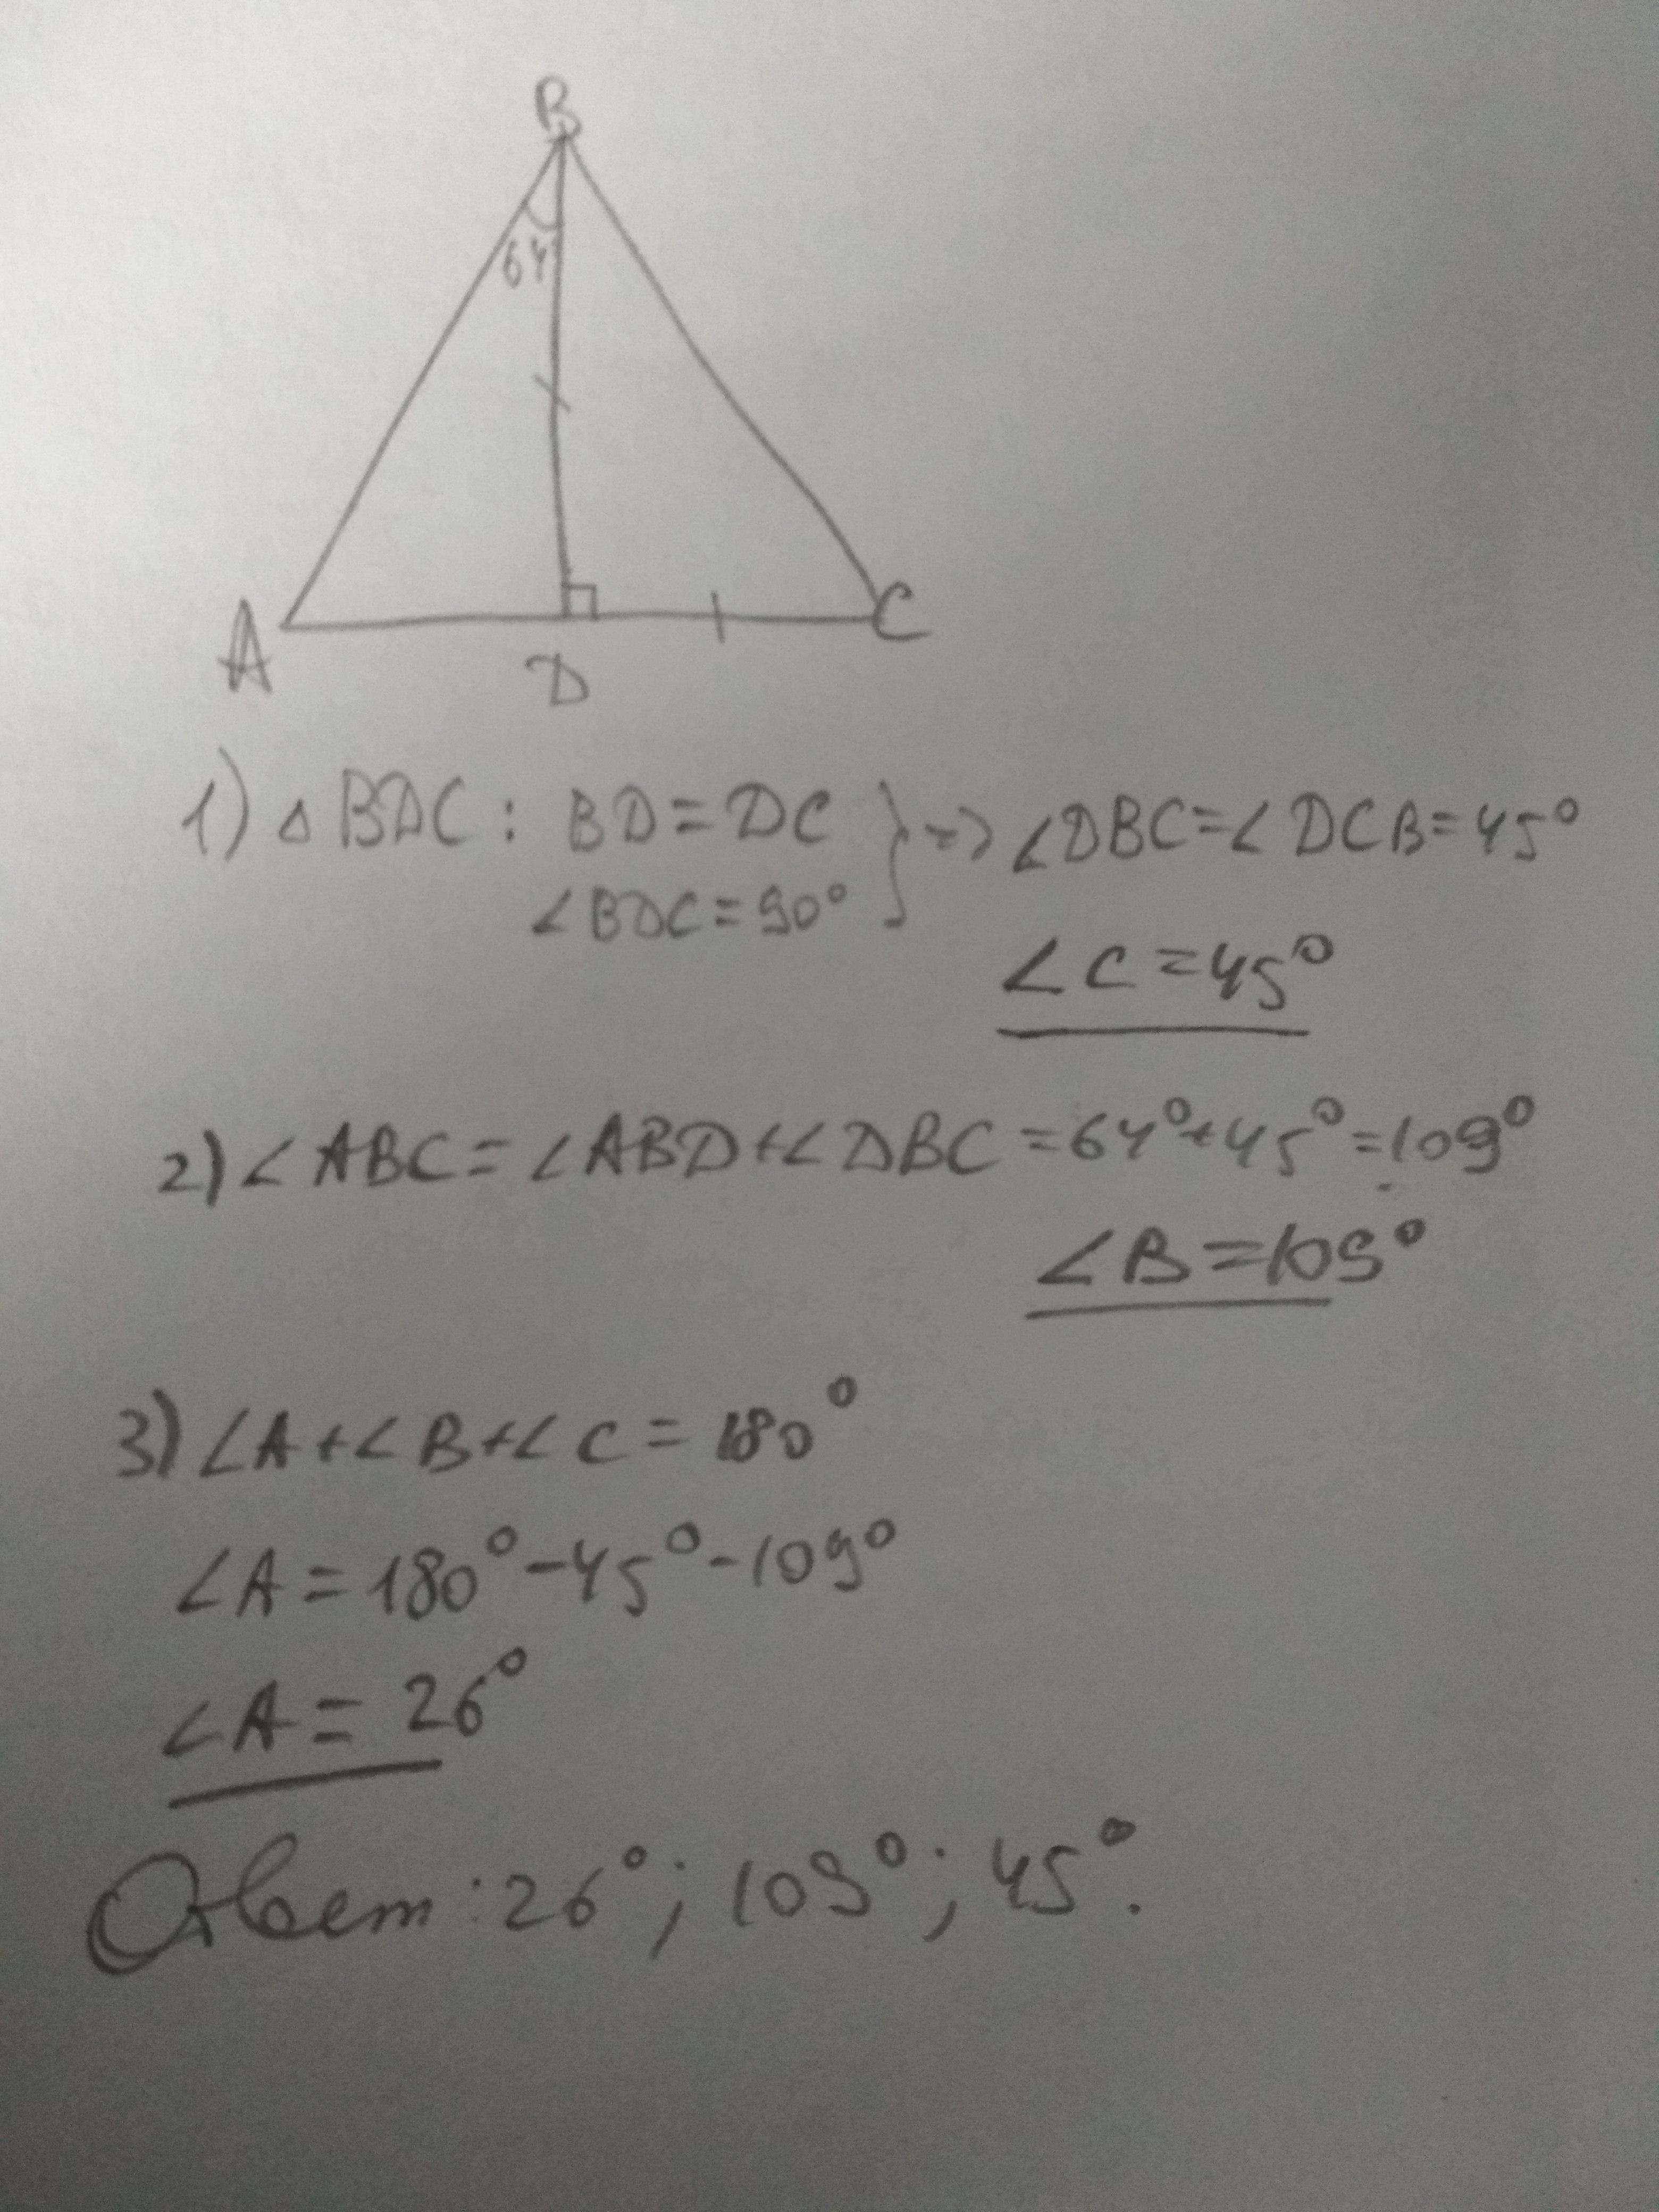 B
64
A
D
C
1) △ BDC : BD = DC } => ∠DBC = ∠DCB = 45°
∠BDC = 90°
∠C = 45°
2) ∠ABC = ∠ABD + ∠DBC = 64° + 45° = 109°
∠B = 109°
3) ∠A + ∠B + ∠C = 180°
∠A = 180° - 45° - 109°
∠A = 26°
Ответ: 26°; 109°; 45°.